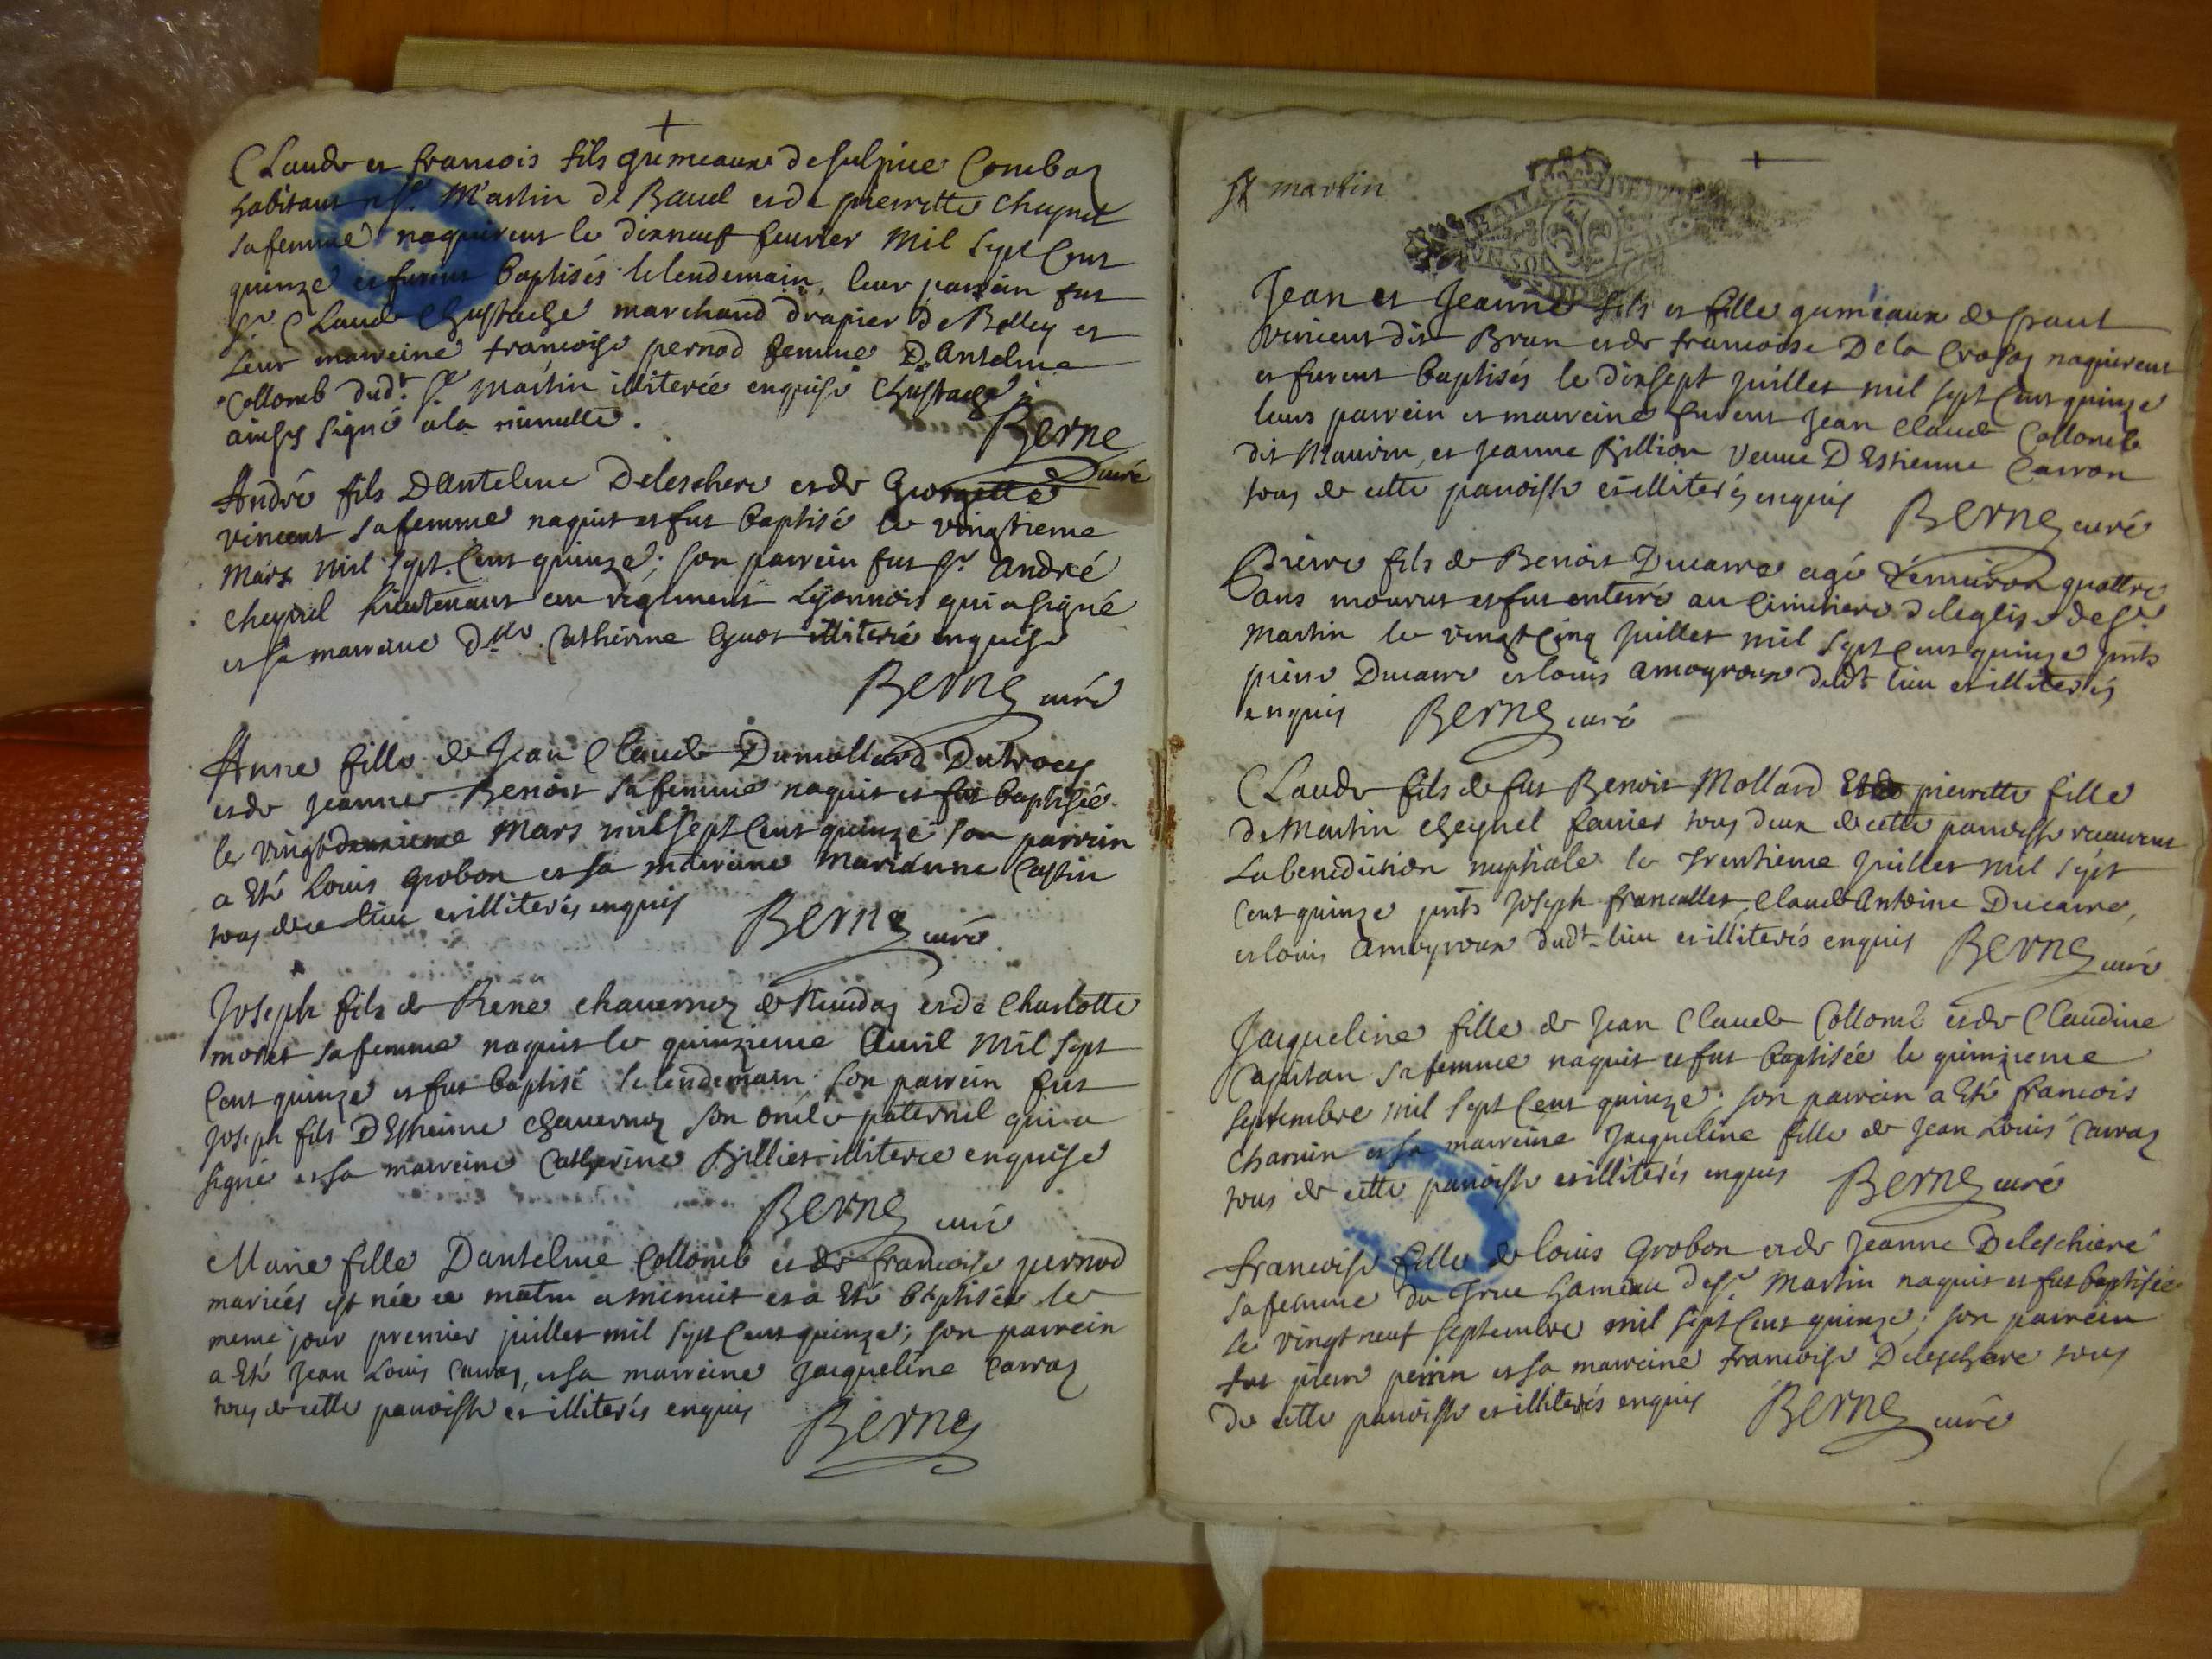 Claude et francois fils gumeaux de sulpice Combaz
habitant a St. Martin de Bavel et de pierrette cheynel
sa femme naquirent le dixneuf feurier mil sept Cent
quinze et furent baptisés le lendemain, leur parrain fut
Sr Claude Chustache marchand drapier de Belley et
leur marreine francoise pernod femme D'antelme
Collomb dudt. St Martin illiterée enquise Chustache
ainsy signé a la minutte.
Berne
curé
André fils D'antelme Deleschere et de Georgette
vincent sa femme naquit et fut baptisé le vingtieme
Mars mil sept Cent quinze; son parrein fut Sr André
cheynel Lieutenant au regiment Lyonnois qui a signé
et sa marreine dlle Catherine Guot illiterée enquise
Berne curé
Anne fille de Jean Claude Dumollard Dutrouy
et de Jeanne Benoit sa femme naquit et fut baptisée
le vingt deuxieme Mars mil sept Cent quinze son parrein
a Eté Louis Grobon et sa marreine Marianne Castin
tous de ce lieu et illiterés enquis
Berne curé.
Joseph fils de Rene chauernoz de et de Charlotte
moret sa femme naquit le quinzieme Auril mil sept
Cent quinze et fut baptisé le lendemain son parrein fut
Joseph fils D'Estienne chauernoz son oncle paternel qui a
signé et sa marreine Catherine Billiet illiterée enquise
Berne curé
Marie fille D'antelme Collomb et de francoise pernod
mariées est née ce matin a minuit et a Eté baptisée le
meme jour premier juillet mil sept Cent quinze; son parrein
a Eté Jean Louis Carraz, et sa marreine Jacqueline Carraz
tous de cette parroisse et illiterés enquis
Berne
St martin
Jean et Jeanne fils et fille gumeaux de
vincent dit Brun et de francoise De la Crosaz naquirent
et furent baptisés le dixsept juillet mil sept Cent quinze
leurs parrein et marreine furent Jean Claude Collomb
dit Mauvin, et Jeanne Billion veuve D'Estienne Carron
tous de cette parroisse et illiterés enquis
Berne curé
Pierre fils de Benoit Ducarre agé d'enuiron quattre
ans mourut et fut enterré au Cimitiere de leglise de St
Martin le vingt Cinq juillet mil sept Cent quinze pnts
pierre Ducarre et louis amoyroux dudt lieu et illiterés
enquis Berne curé
Claude fils de fut Benoit Mollard Et pierrette fille
de Martin cheynel fauier tous deux de cette parroisse receurent
La benediction nuptiale le trentieme juillet mil sept
Cent quinze pnts Joseph francallet, Claude Antoine Ducarre,
et louis amoyroux dudt lieu et illiterés enquis Berne curé
Jacqueline fille de Jean Claude Collomb et de Claudine
Cajultan sa femme naquit et fut baptisée le quinzieme
septembre mil sept Cent quinze; son parrein a Eté francois
Charuin et sa marreine Jacqueline fille de Jean Louis Carraz
tous de cette parroisse et illiterés enquis Berne curé
francoise fille de louis Grobon et de Jeanne Deleschiere
sa femme du hameau de St Martin naquit et fut baptisée
le vingt neuf septembre mil sept Cent quinze; son parrein
fut pierre perrin et sa marreine francoise Deleschere tous
de cette parroisse et illiterés enquis Berne curé